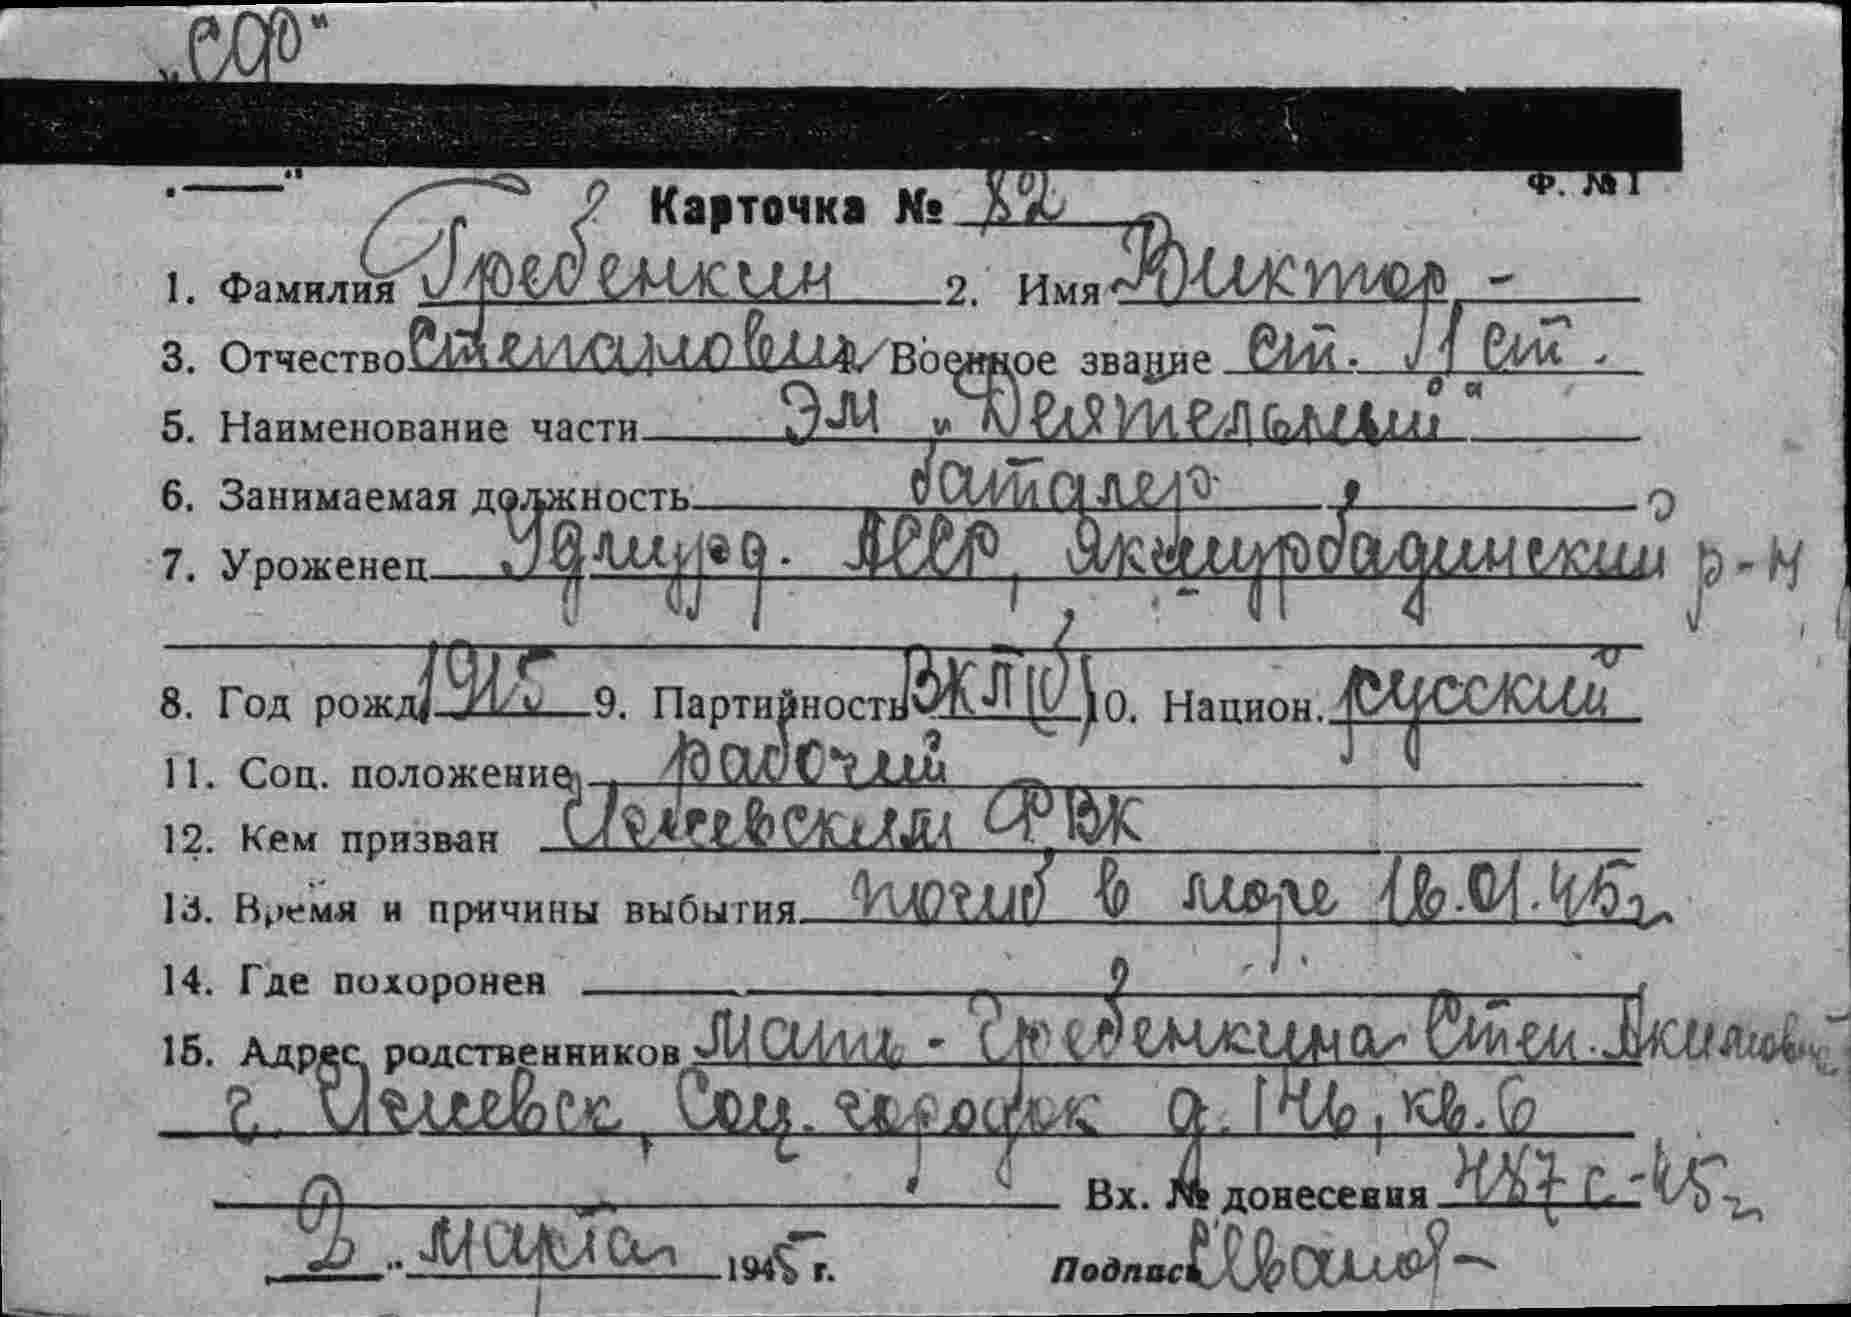 „СФ“
Ф. №1
Карточка № 82
1. Фамилия Гребенкин 2. Имя Виктор -
3. Отчество Степанович 4. Военное звание ст. II ст.
5. Наименование части ЭМ „Деятельный“
6. Занимаемая должность баталер
7. Уроженец Удмурд. АССР, Якшурбадинский р-н
8. Год рожд. 1915 9. Партийность ВКП(б) 10. Национ. русский
11. Соц. положение рабочий
12. Кем призван Ижевским РВК
13. Время и причины выбытия погиб в море 16.01.45г
14. Где похоронен
15. Адрес родственников Мать - Гребенкина Степ. Акимовна
г. Ижевск, Соц. городок д. 146, кв. 6
Вх. № донесения 487с-45г
2 „ марта 1945 г. Подпись Иванов